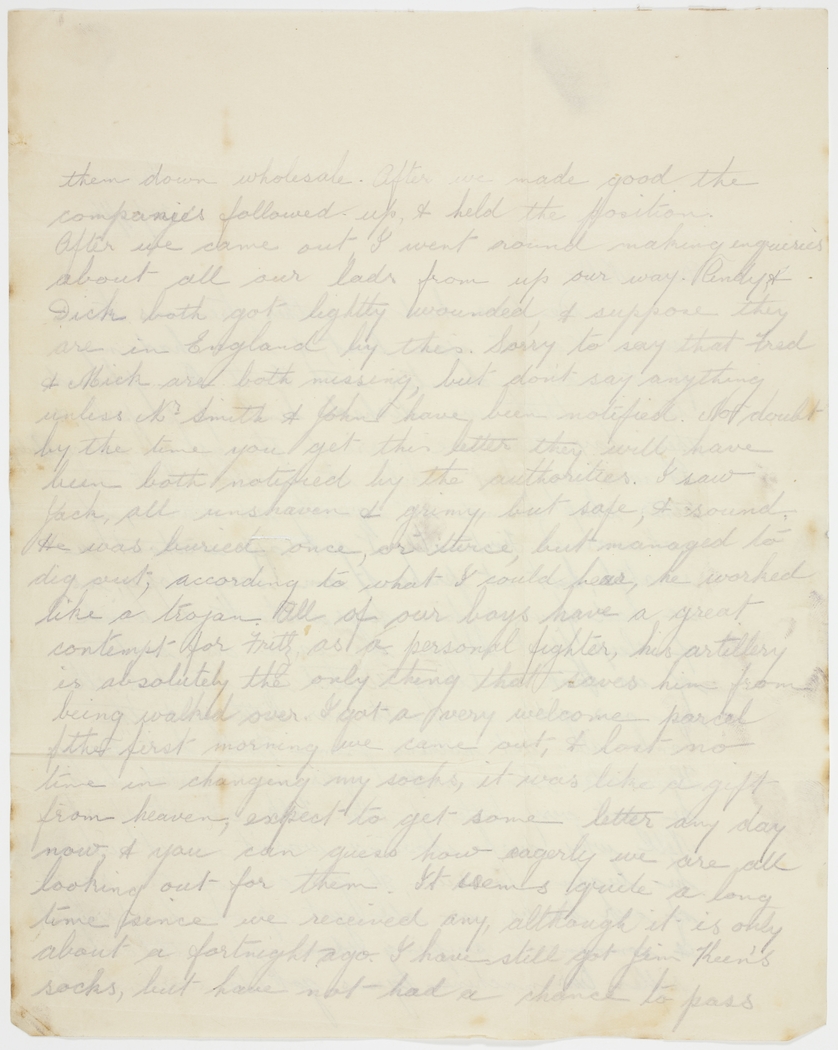 them down wholesale. After we made good the
companies followed up, & held the position.
After we came out, I went round making enqueries
about all our lads from up our way. &
Dick both got lightly wounded & suppose they
are in England by this. Sorry to say that Fred
& Mick are both missing, but dont say anything
unless Mrs Smith & John have been notified. No doubt
by the time you get this letter they will have
been both notified by the authorities. I saw
Jack, all unshaven & grimy but safe, & sound.
He was buried once, or twice, but managed to
dig out; according to what I could hear, he worked
like a trojan. All of our boys have a great
contempt for Fritz, as a personal fighter, his artillery
is absolutely the only thing that saves him from
being walked over. I got a very welcome parcel
the first morning we came out, & lost no
time in changing my socks, it was like a gift
from heaven, expect to get some letter any day
now, & you can guess how eagerly we are all
looking out for them. It seems quite a long
time since we received any, although it is only
about a fortnight ago. I have still got Jim Keen's
socks, but have not had a chance to pass